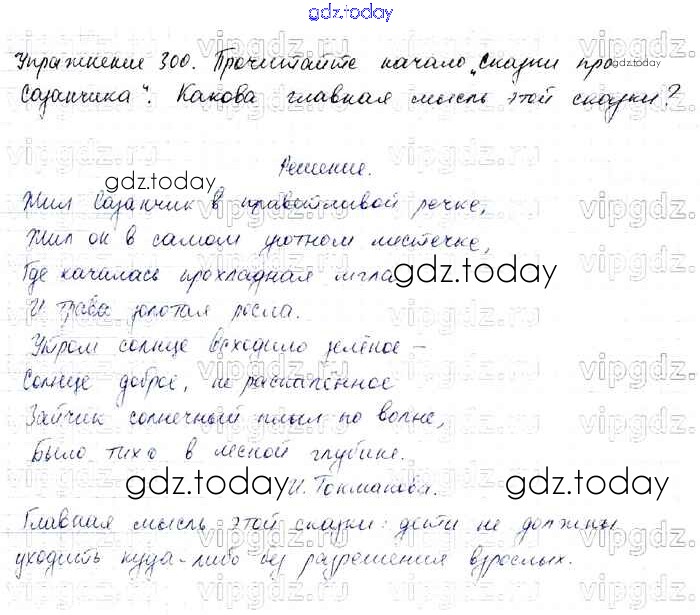 gdz.today
Упражнение 300. Прочитайте начало „Сказки про
gdz.today
Сазанчика“. Какова главная мысль этой сказки?
Решение.
gdz.today
Жил Сазанчик в приветливой речке,
Жил он в самом уютном местечке,
Где качалась прохладная мгла
gdz.today
И трава золотая росла.
Утром солнце всходило зелёное –
Солнце доброе, не распалённое
Зайчик солнечный плыл по волне,
Было тихо в лесной глубине.
gdz.today
gdz.today
И. Токмакова.
Главная мысль этой сказки: дети не должны
уходить куда-либо без разрешения взрослых.